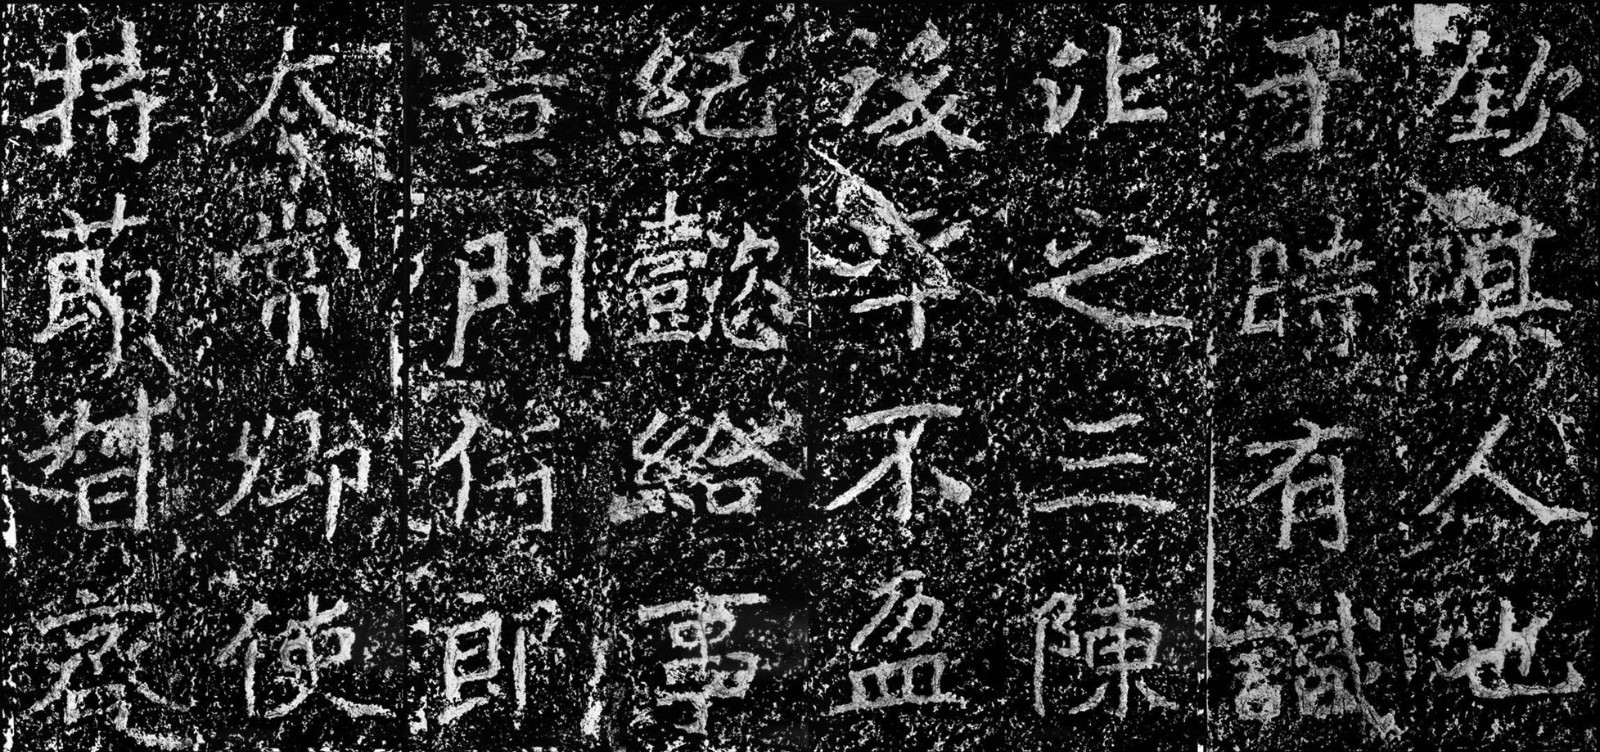 欽人也
于時有識
比之三陳
後年不盈
紀懿給事
黃門侍郎
太常卿使
持節督齊